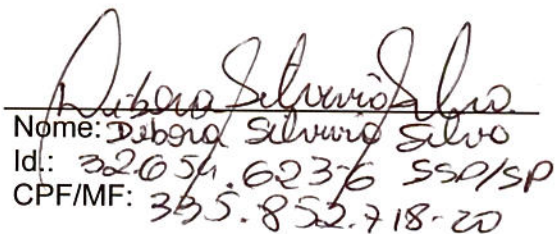 Debora Silverio Silva
Nome: Debora Silverio Silva
Id.: 32.654.623-6 SSP/SP
CPF/MF: 335.852.718-20